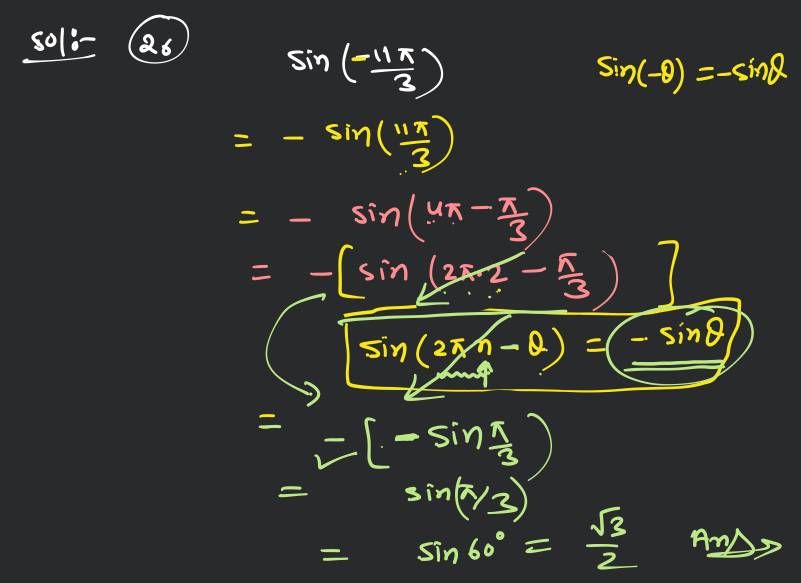 Sol:- (26)
sin(-11π/3)
sin(-θ) = -sinθ
= - sin(11π/3)
= - sin(4π - π/3)
= -[sin (2π·2 - π/3)]
sin(2πn - θ) = - sinθ
= -[-sin π/3)
= sin(π/3)
= sin 60° = √3/2 Ans